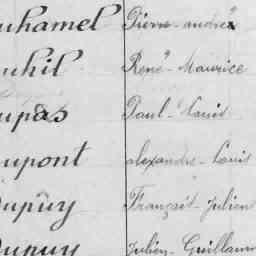 uhamel Pierre-andré
uhil René-Maurice
upas Paul-Louis
upont alexandre-Louis
upuy François-Julien
upuy Julien-Guillaum